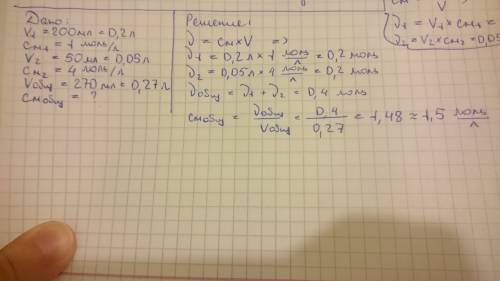 Дано:
V1 = 200мл = 0,2л
см1 = 1 моль/л
V2 = 50мл = 0,05л
см2 = 4 моль/л
Vобщ = 270мл = 0,27л
смобщ = ?
Решение:
ν = см×V =>
ν1 = 0,2л × 1 моль/л = 0,2 моль
ν2 = 0,05л × 4 моль/л = 0,2 моль
νобщ = ν1 + ν2 = 0,4 моль
смобщ = νобщ/Vобщ = 0,4/0,27 = 1,48 ≈ 1,5 моль/л
V
ν1 = V1 × см1 =
ν2 = V2 × см2 = 0,05